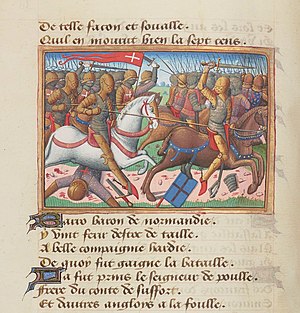 De telle facon et foualle.
Quil en mourut bien la sept cens.
Haro baron de normandie.
Y vint ferir desfoc de taille.
A belle compaignie hardie.
De quoy fut gaigne la bataille.
La fut prins le seigneur de poulle.
Frere du conte de suffort.
Et dautres anglois a la foulle.